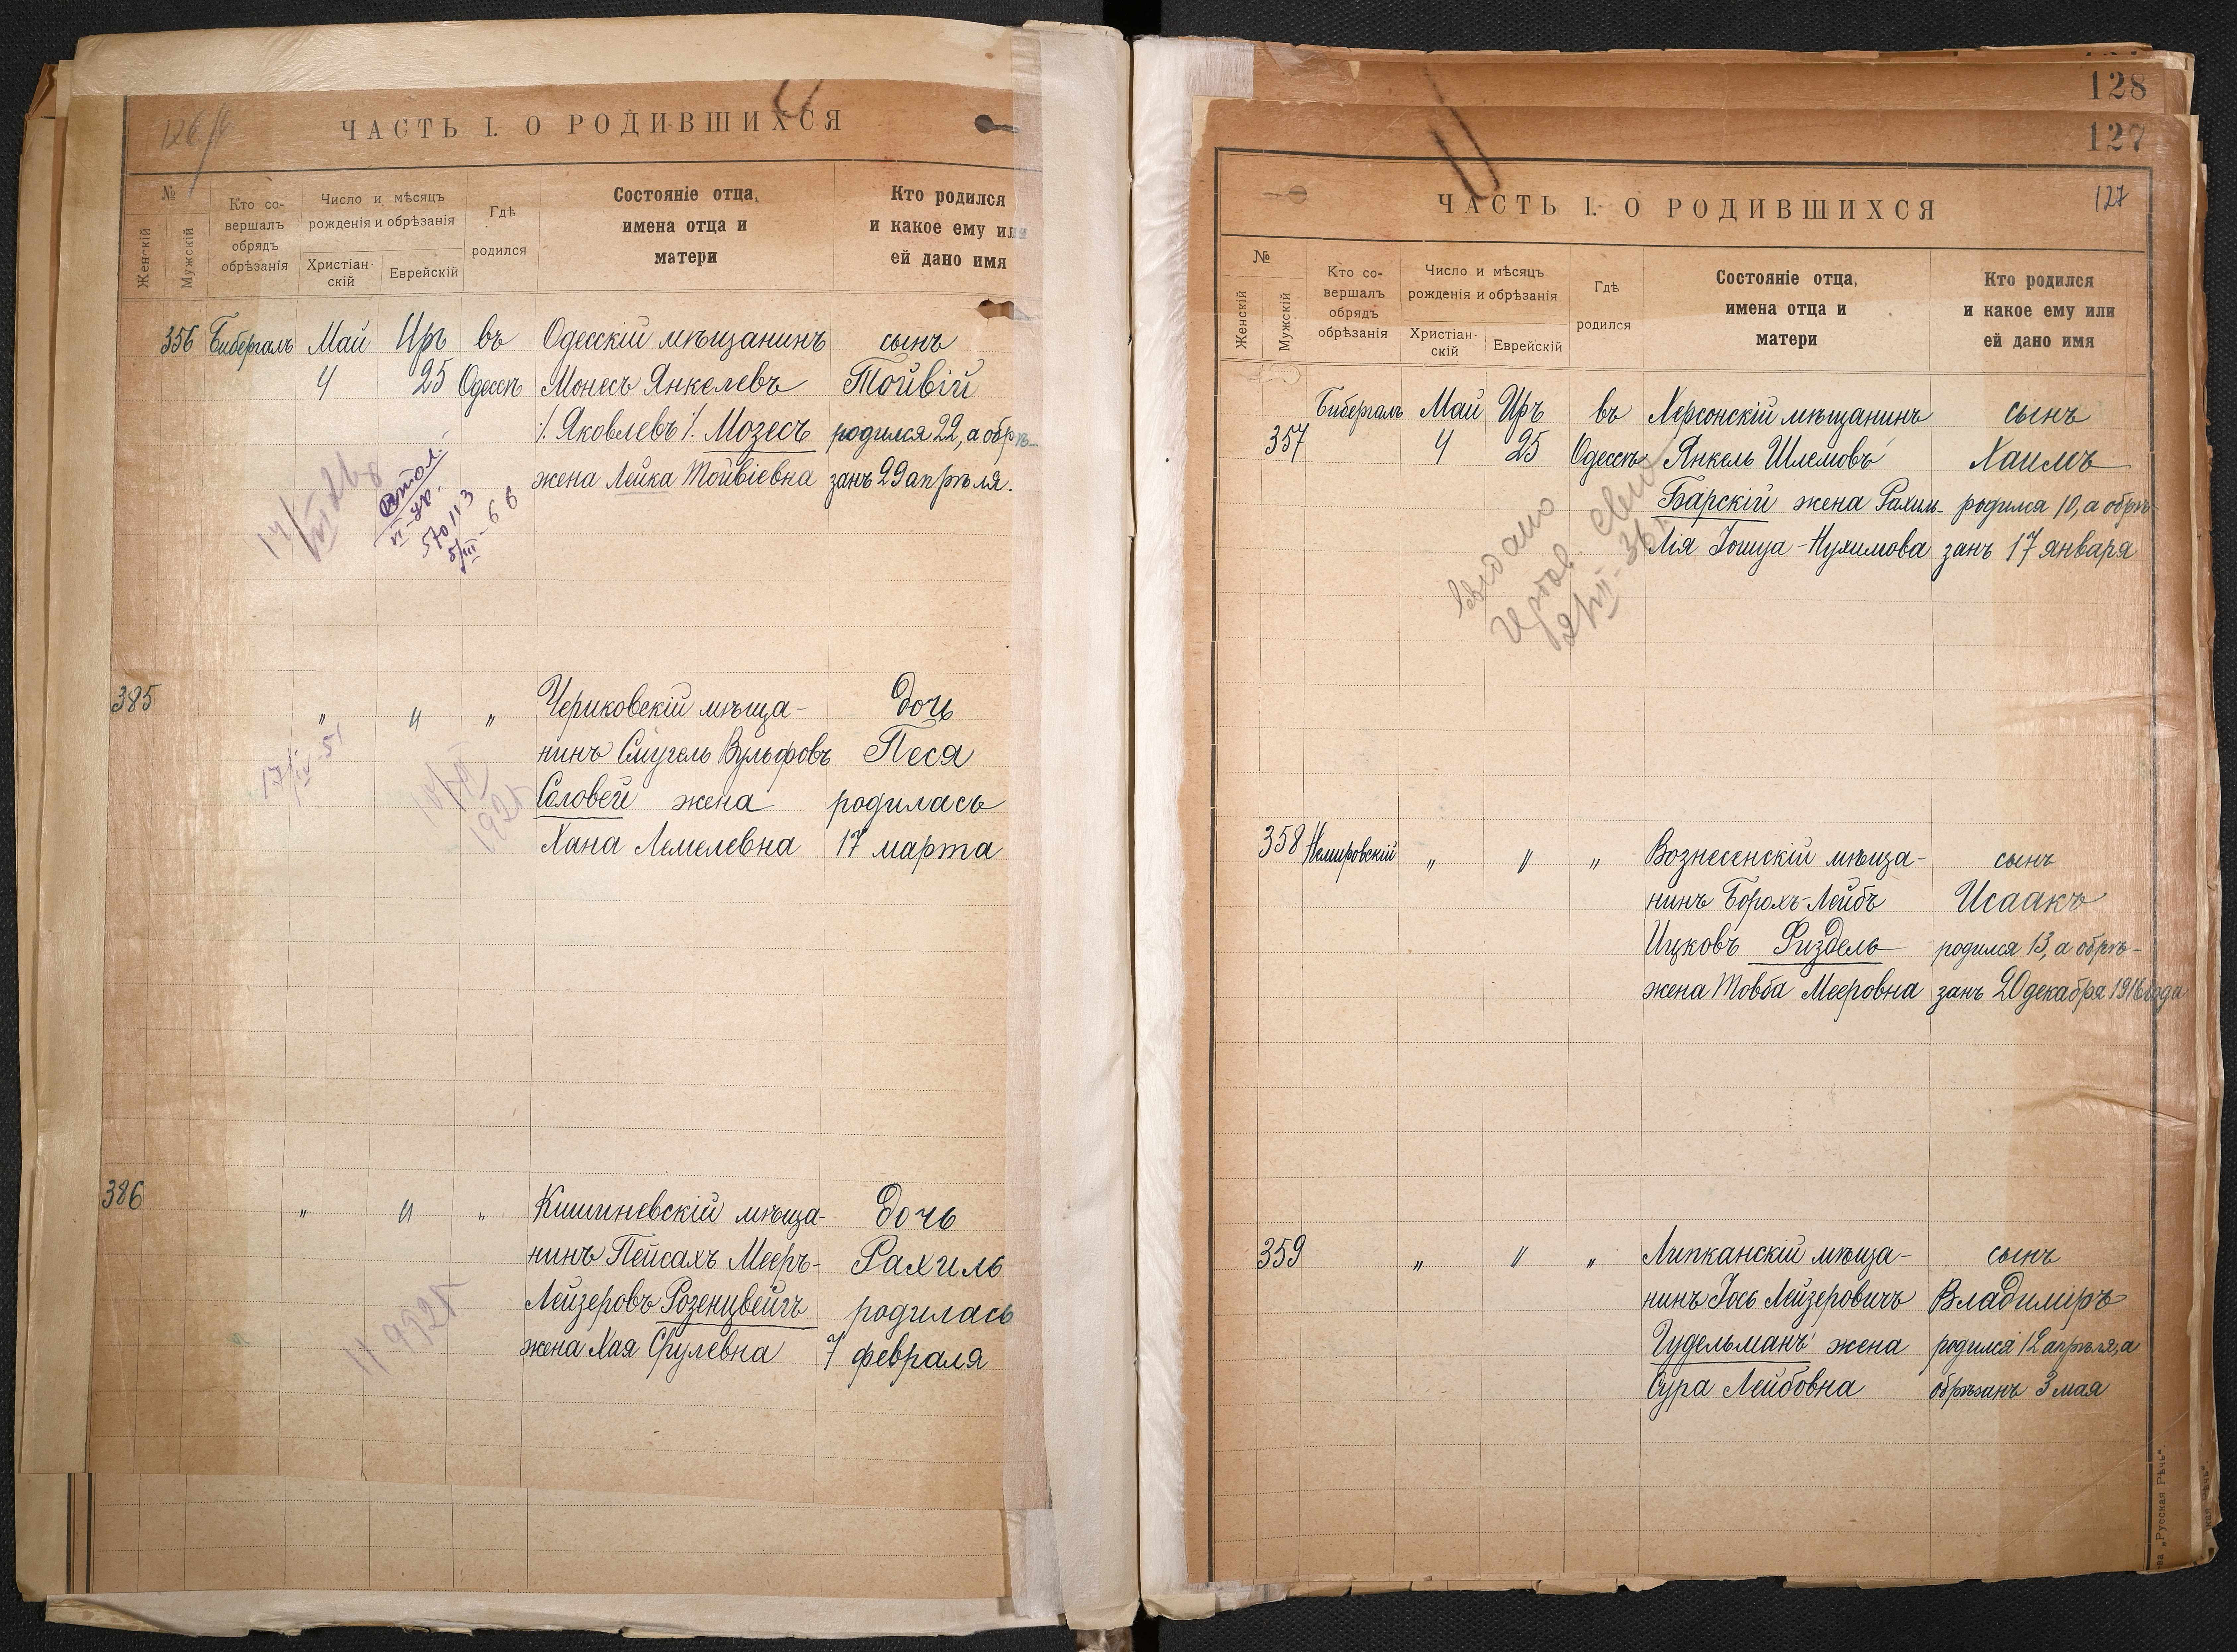 ЧАСТЬ I. О РОДИВШИХСЯ
№
Женскій
Мужскій
Кто со-
вершалъ
обрядъ
обрѣзанія
Число и мѣсяцъ
рожденія и обрѣзанія
Христіан-
скій
Еврейскій
Гдѣ
родился
Состояніе отца,
имена отца и
матери
Кто родился
и какое ему или
ей дано имя
356 Бибергалъ Май Иръ въ Одесскій мѣщанинъ сынъ
4 25 Одессѣ Монесъ Янкелевъ Тойвій
·/. Яковлевъ ·/. Мозесъ родился 22, а обрѣ-
жена Лейка Тойвіевна занъ 29 апрѣля.
570113
5/III-66
385 " " " Чериковскій мѣща- дочь
нинъ Смугель Вульфовъ Песя
Соловей жена родилась
Хана Лемелевна 17 марта
17/IX 51
1925
386 " " " Кишиневскій мѣща- дочь
нинъ Пейсахъ Мееръ- Рахиль
Лейзеровъ Розенцвейгъ родилась
жена Хая Срулевна 7 февраля
128
127
127
ЧАСТЬ I. О РОДИВШИХСЯ
№
Женскій
Мужскій
Кто со-
вершалъ
обрядъ
обрѣзанія
Число и мѣсяцъ
рожденія и обрѣзанія
Христіан-
скій
Еврейскій
Гдѣ
родился
Состояніе отца,
имена отца и
матери
Кто родился
и какое ему или
ей дано имя
Бибергалъ Май Иръ въ Херсонскій мѣщанинъ сынъ
357 4 25 Одессѣ Янкель Шлемовъ Хаимъ
Барскій жена Рахиль- родился 10, а обрѣ-
Лія Іошуа-Нухимова занъ 17 января
выдано
358 Немировскій " " " Вознесенскій мѣща- сынъ
нинъ Борохъ-Лейбъ Исаакъ
Ицковъ Физдель родился 13, а обрѣ-
жена Товба Мееровна занъ 20 декабря 1916 года
359 " " " Липканскій мѣща- сынъ
нинъ Іось Лейзеровичъ Владиміръ
Гудельманъ жена родился 12 апрѣля, а
Сура Лейбовна обрѣзанъ 3 мая
„Русская Рѣчь“.